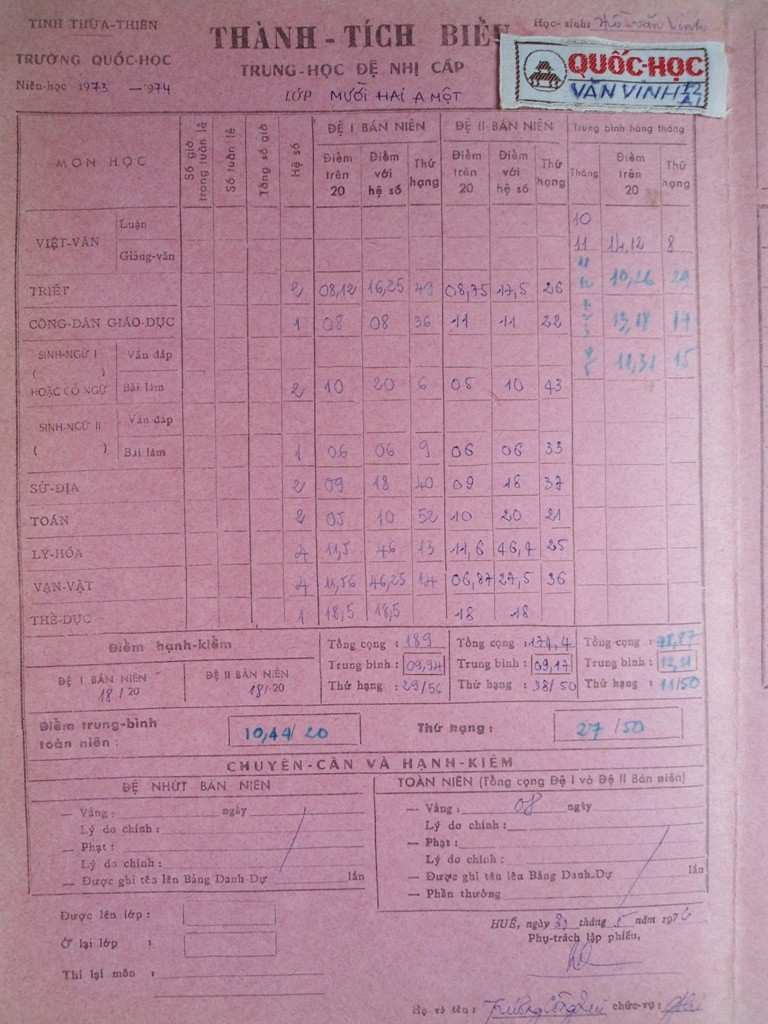 TỈNH THỪA-THIÊN
TRƯỜNG QUỐC-HỌC
Niên-học 1973 — 1974
THÀNH - TÍCH BIỂU
TRUNG-HỌC ĐỆ NHỊ CẤP
LỚP MƯỜI HAI A MỘT
Học-sinh: Hồ văn Vinh
QUỐC-HỌC
VĂN VINH 12 A1
MÔN HỌC
Số giờ trong tuần lễ
Số tuần lễ
Tổng số giờ
Hệ số
ĐỆ I BÁN NIÊN
ĐỆ II BÁN NIÊN
Trung bình hàng tháng
Điểm trên 20
Điểm với hệ số
Thứ hạng
Điểm trên 20
Điểm với hệ số
Thứ hạng
Tháng
Điểm trên 20
Thứ hạng
VIỆT-VĂN
Luận
Giảng-văn
10
11 14,12 8
10,26 29
TRIẾT 2 08,12 16,25 49 08,75 17,5 26
CÔNG-DÂN GIÁO-DỤC 1 08 08 36 11 11 22
13,18 17
SINH-NGỮ I
( )
HOẶC CỔ NGỮ
Vấn đáp
11,31 15
Bài làm 2 10 20 6 05 10 43
SINH-NGỮ II
( )
Vấn đáp
Bài làm 1 06 06 9 06 06 33
SỬ-ĐỊA 2 09 18 40 09 18 37
TOÁN 2 05 10 52 10 20 21
LÝ-HÓA 4 11,5 46 13 11,6 46,4 25
VẠN-VẬT 4 11,56 46,25 14 06,87 27,5 36
THỂ-DỤC 1 18,5 18,5 18 18
Điểm hạnh-kiểm
ĐỆ I BÁN NIÊN
18/20
ĐỆ II BÁN NIÊN
18/20
Tổng cộng : 189
Trung bình : 09,94
Thứ hạng : 29/56
Tổng cộng : 174,4
Trung bình : 09,17
Thứ hạng : 38/50
Tổng cộng :
Trung bình :
Thứ hạng : 11/50
Điểm trung-bình toàn niên : 10,44/20
Thứ hạng : 27/50
CHUYÊN-CẦN VÀ HẠNH-KIỂM
ĐỆ NHỨT BÁN NIÊN
— Vắng : ngày
Lý do chính :
— Phạt :
Lý do chính :
— Được ghi tên lên Bảng Danh-Dự lần
TOÀN NIÊN (Tổng cộng Đệ I và Đệ II Bán niên)
— Vắng : 08 ngày
Lý do chính :
— Phạt :
Lý do chính :
— Được ghi tên lên Bảng Danh-Dự lần
— Phần thưởng
Được lên lớp :
Ở lại lớp :
Thi lại môn :
HUẾ, ngày tháng 5 năm 1974
Phụ-trách lập phiếu,
Họ và tên : chức-vụ :